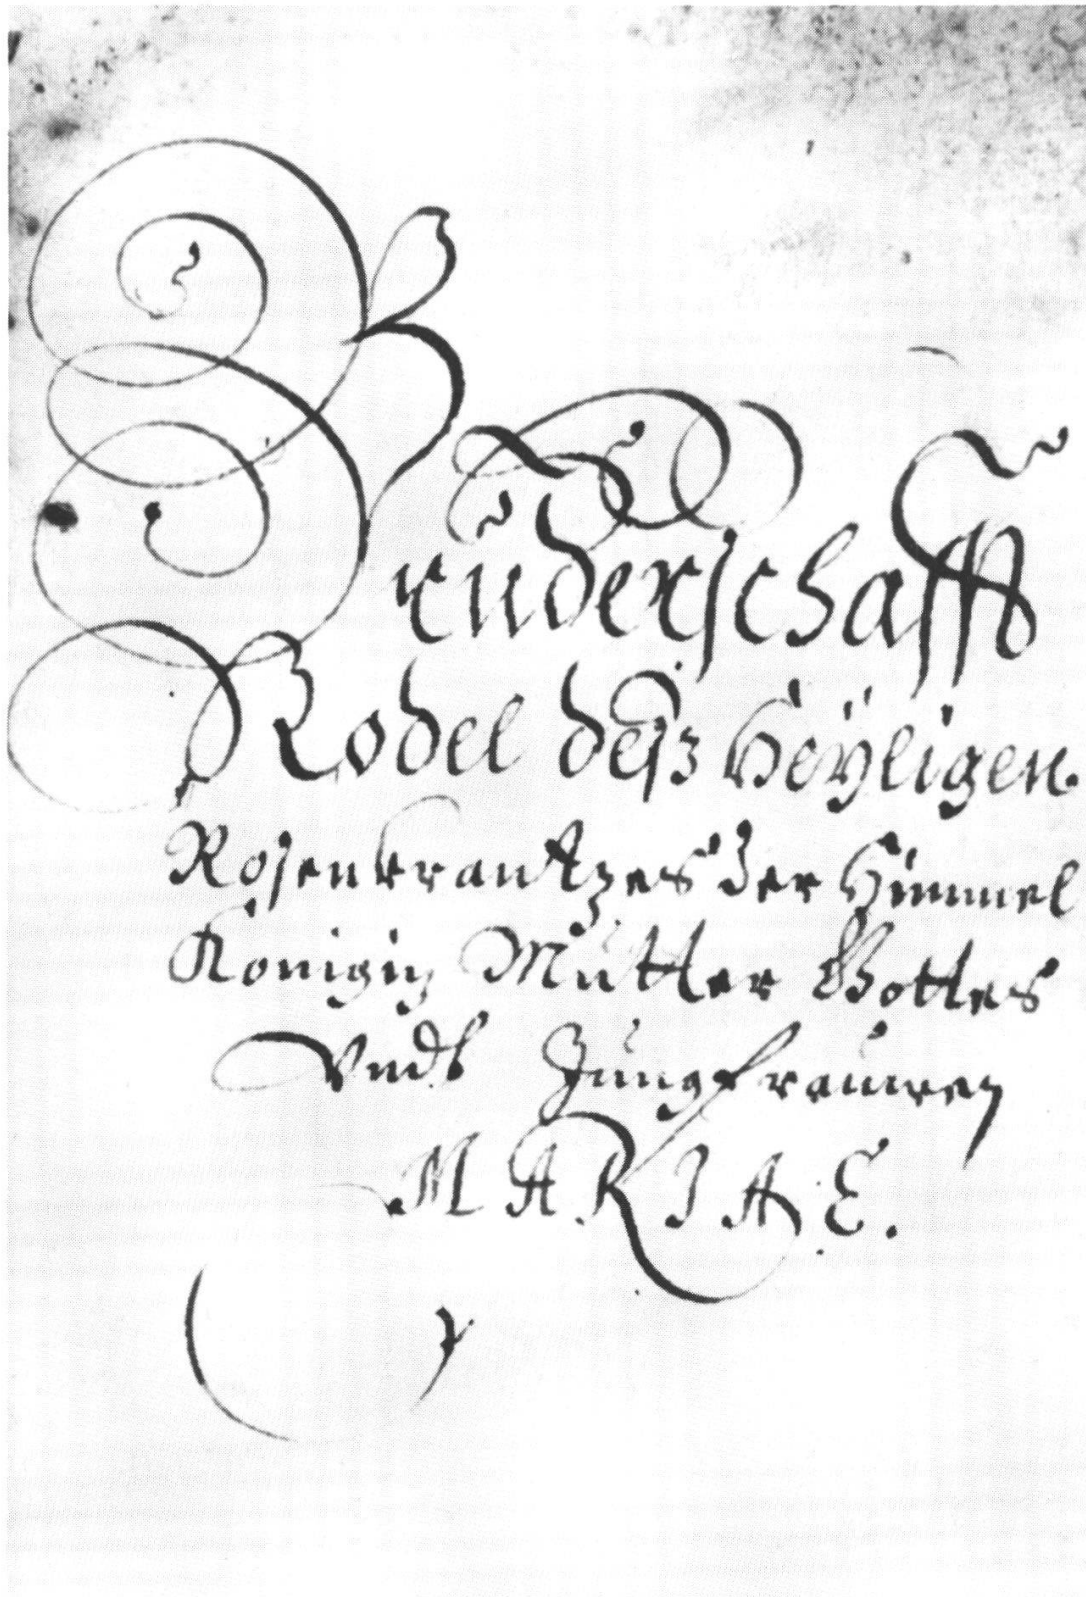 Brüderschafft
Rodel deß Heÿligen
Rosenkrantzes der Himmel
Königin Mutter Gottes
Vndt Jungfrauwen
MARIAE.